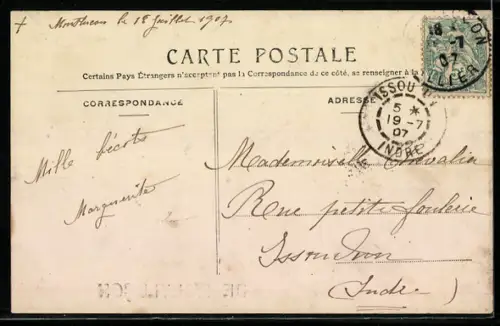 + Montlucon le 18 Juillet 1907
CARTE POSTALE
Certains Pays Étrangers n'acceptent pas la Correspondance de ce côté, se renseigner à la
CORRESPONDANCE
ADRESSE
18
-7
07
ALLIER
ISSOUDUN
5 *
19-7
07
INDRE
Mille
Marguerite
Mademoiselle Chevalier
Rue petite
Issoudun
(Indre)